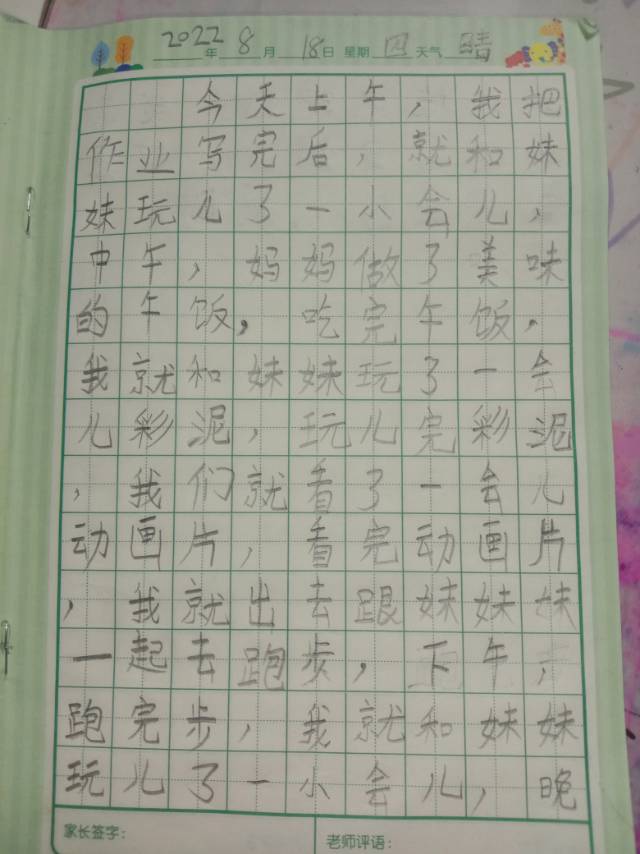 2022年8月18日 星期四 天气 晴
今天上午，我把
作业写完后，就和妹
妹玩儿了一小会儿，
中午，妈妈做了美味
的午饭，吃完午饭，
我就和妹妹玩了一会
儿彩泥，玩儿完彩泥
，我们就看了一会儿
动画片，看完动画片
，我就出去跟妹妹妹
一起去跑步，下午，
跑完步，我就和妹妹
玩儿了一小会儿，晚
家长签字：
老师评语：